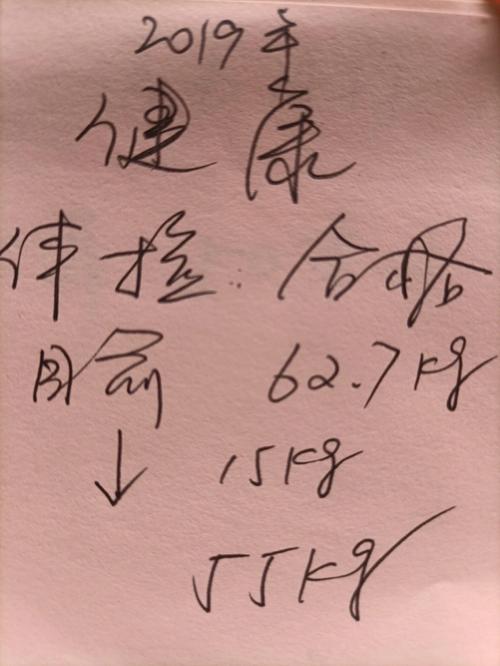 2019年
健康
体检:合格
目前 62.7kg
↓ 15kg
55kg